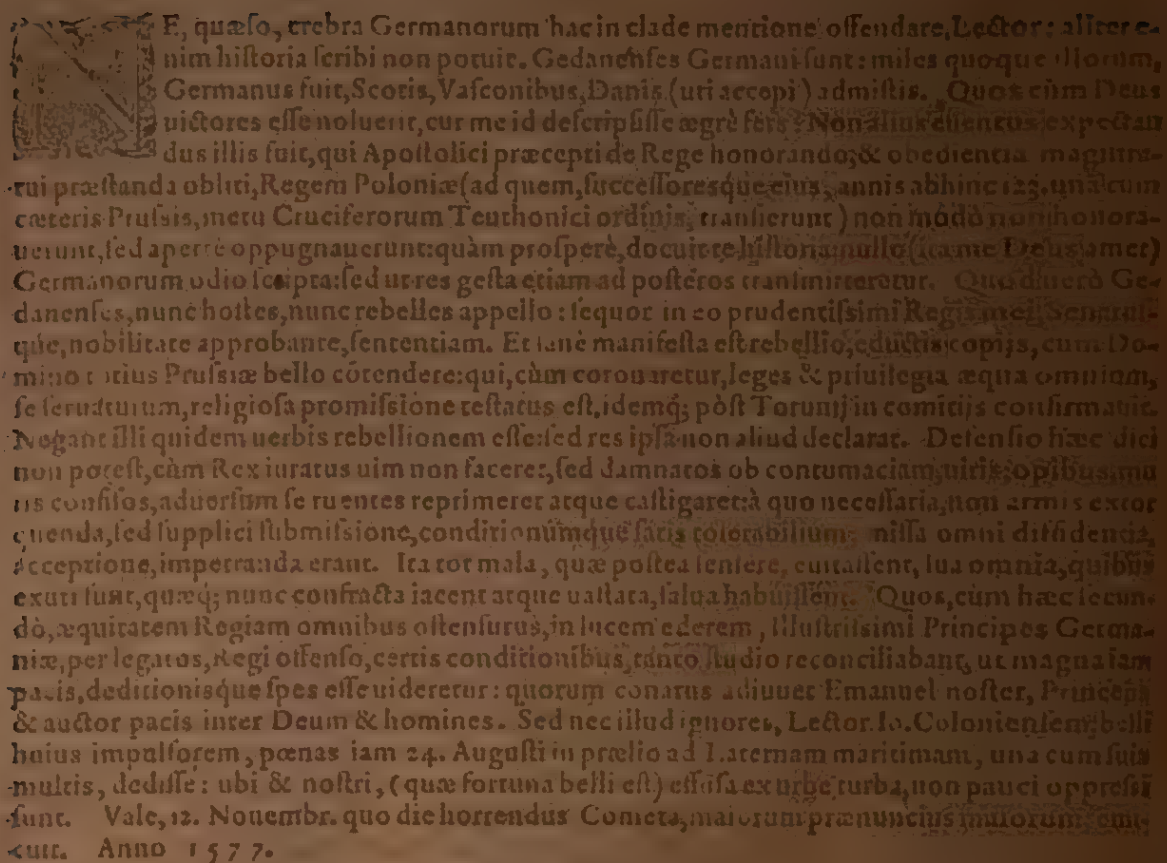 NE, quæſo, crebra Germanorum hac in clade mentione offendare, Lector: aliter e-
nim hiſtoria ſcribi non potuit. Gedanenſes Germani ſunt: miles quoque illorum,
Germanus fuit, Scotis, Vaſconibus, Danis (uti accepi) admiſtis. Quos cùm Deus
uictores eſſe noluerit, cur me id deſcripſiſſe ægrè fers? Non alius euentus expectan
dus illis fuit, qui Apoſtolici præcepti de Rege honorando, & obedientia magiſtra-
tui præſtanda obliti, Regem Poloniæ (ad quem, ſucceſſoresque eius, annis abhinc 123. unà cum
cæteris Pruſsis, metu Cruciferorum Teuthonici ordinis, tranſierunt) non modò non honora-
uerunt, ſed apertè oppugnauerunt: quàm proſperè, docuit te hiſtoria: nullo (ita me Deus amet)
Germanorum odio ſcripta: ſed ut res geſta etiam ad poſteros tranſmitteretur. Quod uerò Ge-
danenſes, nunc hoſtes, nunc rebelles appello: ſequor in eo prudentiſsimi Regis mei, Senatuſ-
que, nobilitate approbante, ſententiam. Et ſanè manifeſta eſt rebellio, eductis copijs, cum Do-
mino totius Pruſsiæ bello cōtendere: qui, cùm coronaretur, leges & priuilegia æqua omnium,
ſe ſeruaturum, religioſa promiſsione teſtatus eſt, idemq́; pòſt Torunij in comitijs confirmauit.
Negant illi quidem uerbis rebellionem eſſe: ſed res ipſa non aliud declarat. Defenſio hæc dici
non poteſt, cùm Rex iuratus uim non faceret, ſed damnatos ob contumaciam, uiris, opibus, mu
ris confiſos, aduerſum ſe ruentes reprimeret atque caſtigaret: à quo neceſſaria, non armis extor
quenda, ſed ſupplici ſubmiſsione, conditionúmque ſatis tolerabilium, miſſa omni diffidentia,
acceptione, impetranda erant. Ita tot mala, quæ poſtea ſenſere, euitaſſent, ſua omnia, quibus
exuti ſunt, quæq́; nunc confracta iacent atque uaſtata, ſalua habuiſſent. Quos, cùm hæc ſecun-
dò, æquitatem Regiam omnibus oſtenſurus, in lucem ederem, Illuſtriſsimi Principes Germa-
niæ, per legatos, Regi offenſo, certis conditionibus, tanto ſtudio reconciliabant, ut magna iam
pacis, deditionisque ſpes eſſe uideretur: quorum conatus adiuuet Emanuel noſter, Princeps
& auctor pacis inter Deum & homines. Sed nec illud ignores, Lector. Io. Colonienſem, belli
huius impulſorem, pœnas iam 24. Auguſti in prælio ad Laternam maritimam, una cum ſuis
multis, dediſſe: ubi & noſtri, (quæ fortuna belli eſt) effuſa ex urbe turba, non pauci oppreſsi
ſunt. Vale, 12. Nouembr. quo die horrendus Cometa, maiorum prænuncius malorum emi-
cuit. Anno 1577.